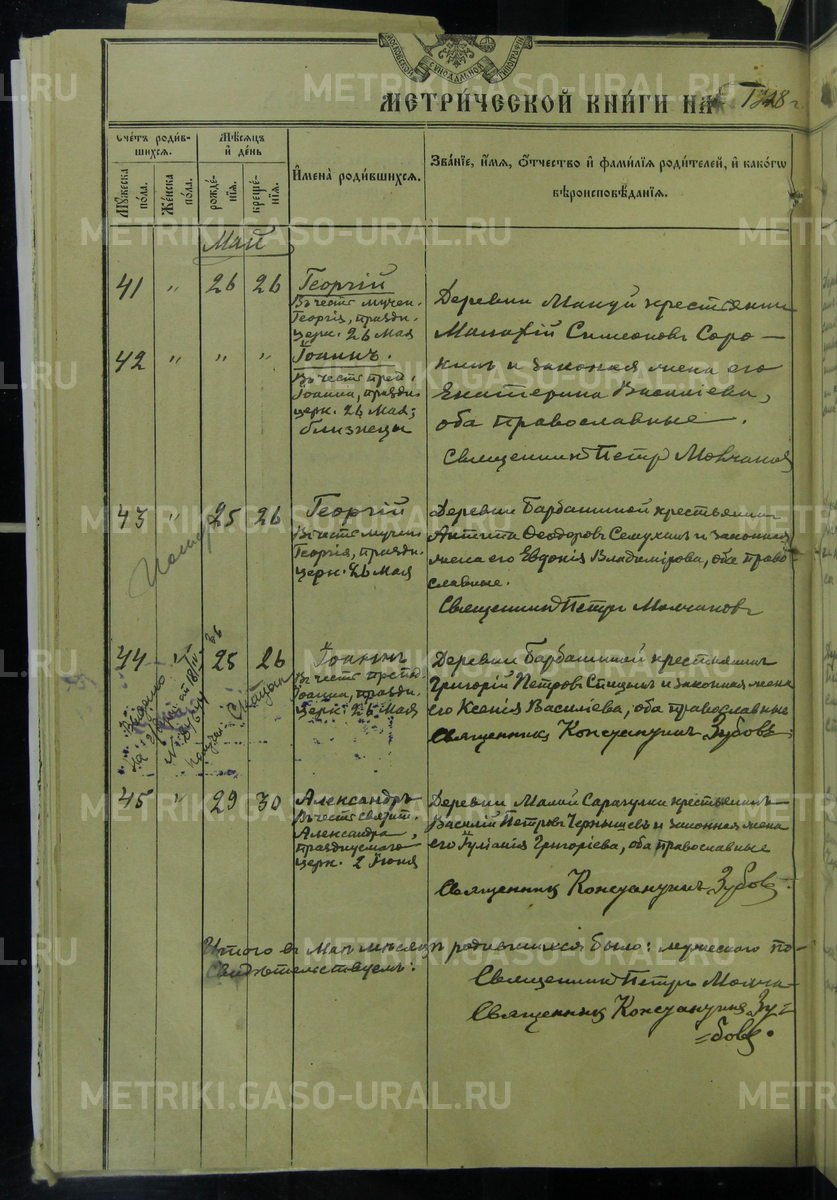 МЕТРИ́ЧЕСКОЙ КНИ́ГИ НА
Сче́тъ роди́в-
шихся.
Му́жеска
по́ла.
Же́нска
по́ла.
Мѣ́сяцъ
и҆ де́нь
рожде́-
нїѧ.
креще́-
нїѧ.
И҆мена̀ роди́вшихся.
Зва́нїе, и҆́мя, о҆́тчество и҆ фами́лїѧ роди́телей, и҆ како́гѡ
вѣроисповѣ́данїѧ.
Май
41 " 26 26 Георгій
Въ честь мучен.
Георгія, праздн.
церк. 26 Мая
42 " " " Іоаннъ.
Въ честь преп.
Іоанна, праздн.
церк. 26 Мая;
близнецы
Деревни Мануй крестьянинъ
Симеоновъ Соро-
кинъ и законная жена его
Екатерина Василіева,
оба православные.
Священникъ Петръ Молчановъ
43 " 25 26 Георгій
Въ честь мучен.
Георгія, праздн.
церк. 26 Мая
Деревни Барбашиной крестьянинъ
Антипа Ѳеодоровъ Семухинъ и законная
жена его Евдокія Владимірова, оба право-
славные.
Священникъ Петръ Молчановъ
44 " 25 26 Іоаннъ
Въ честь препод.
Іоанна, праздн.
церк. 26 Мая
Деревни Барбашиной крестьянинъ
Григорій Петровъ Спицынъ и законная жена
его Ксенія Василіева, оба православные
Священникъ Константинъ Зубовъ.
45 " 29 30 Александръ
Въ честь святит.
Александра,
празднуемаго
церк. 2 Іюня
Деревни Малой Сарапулки крестьянинъ
Василій Петровъ Чернышевъ и законная жена
его Іуліанія Григоріева, оба православные
Священникъ Константинъ Зубовъ.
Итого въ Маѣ мѣсяцѣ родившихся было: мужескаго по-
Свидѣтельствуемъ:
Священникъ Петръ Молча-
Священникъ Константинъ Зу=
=бовъ.
METRIKI.GASO-URAL.RU